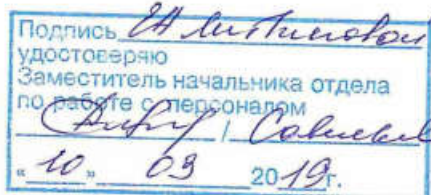 Подпись ЕА
удостоверяю
Заместитель начальника отдела
по работе с персоналом
/
"10" 03 2019г.